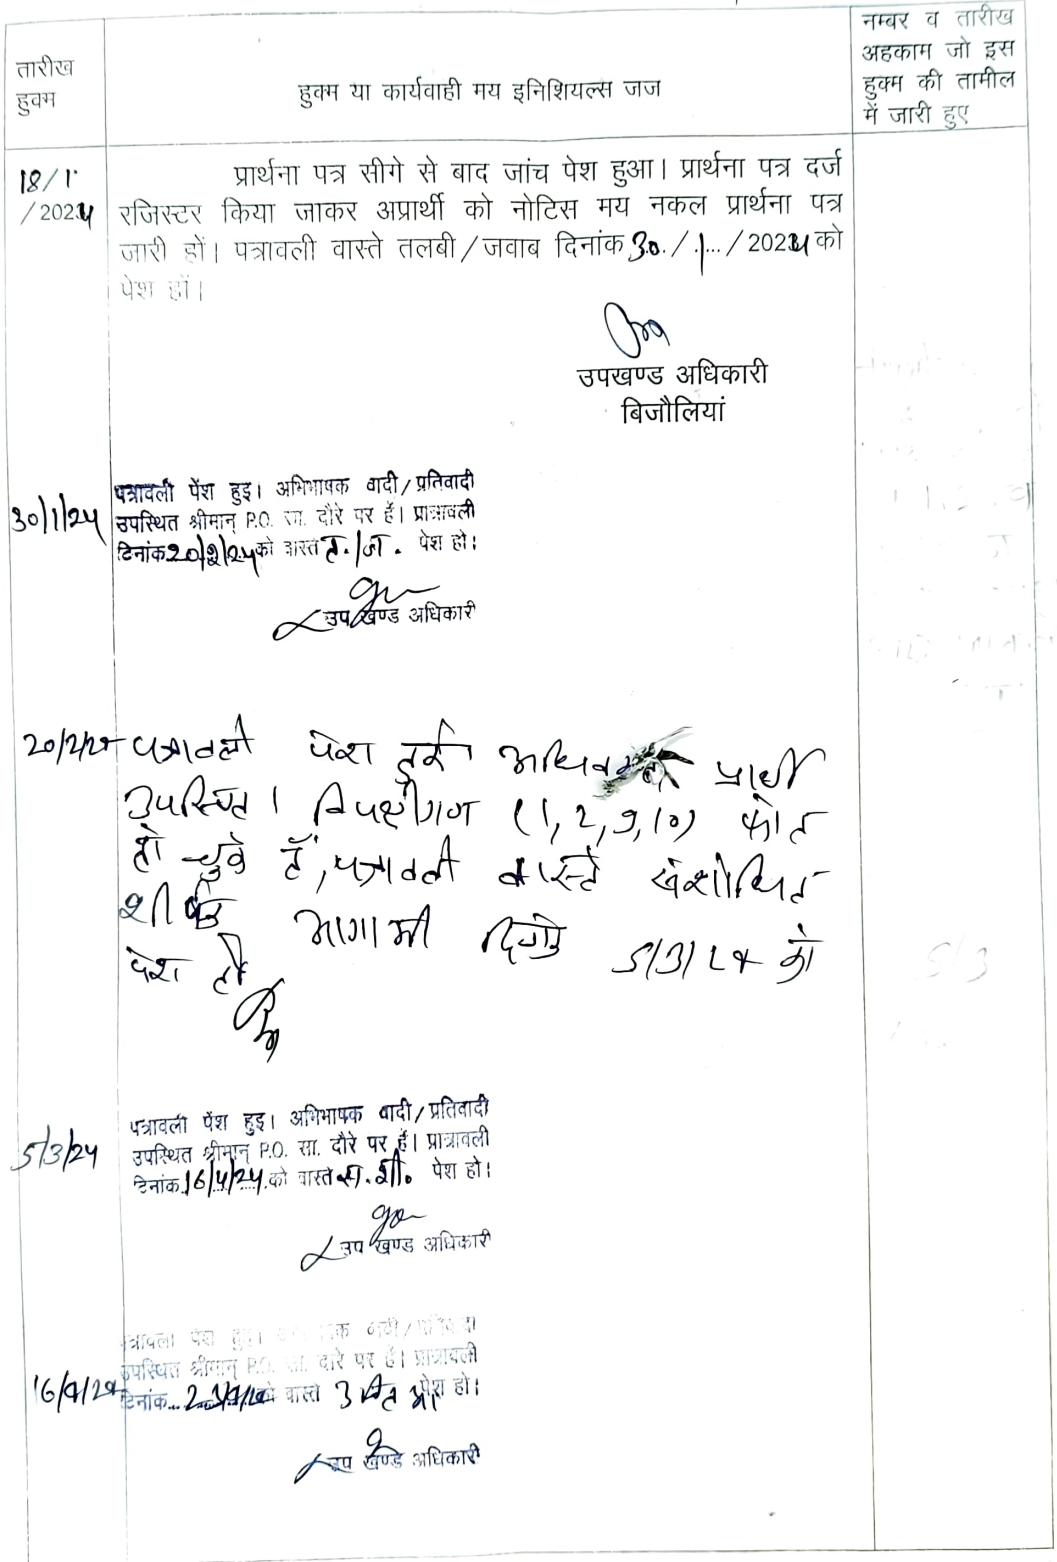 तारीख
हुक्म
हुक्म या कार्यवाही मय इनिशियल्स जज
नम्बर व तारीख
अहकाम जो इस
हुक्म की तामील
में जारी हुए
18/1
/2024
प्रार्थना पत्र सीगे से बाद जांच पेश हुआ। प्रार्थना पत्र दर्ज
रजिस्टर किया जाकर अप्रार्थी को नोटिस मय नकल प्रार्थना पत्र
जारी हों। पत्रावली वास्ते तलबी/जवाब दिनांक 30./.1../2024 को
पेश हों।
उपखण्ड अधिकारी
बिजौलियां
30/1/24
पत्रावली पेंश हुइ। अभिभाषक वादी/प्रतिवादी
उपस्थित श्रीमान् P.O. सा. दौरे पर हैं। प्रात्रावली
दिनांक 20/2/24 को वास्ते त./ज. पेश हो।
उप खण्ड अधिकारी
20/2/24 पत्रावली पेश हुई। प्रार्थी
उपस्थित। विपक्षीगण (1,2,9,10) फोत
हो चुके हैं, पत्रावली वास्ते संशोधित
शीर्षक आगामी दिनांक 5/3/24 को
पेश हो
5/3/24
पत्रावली पेंश हुइ। अभिभाषक वादी/प्रतिवादी
उपस्थित श्रीमान् P.O. सा. दौरे पर हैं। प्रात्रावली
दिनांक 16/4/24 को वास्ते स.शी. पेश हो।
उप खण्ड अधिकारी
16/4/24
पत्रावली पेंश हुइ। वादी/प्रतिवादी
उपस्थित श्रीमान् P.O. सा. दौरे पर हैं। प्रात्रावली
दिनांक को वास्ते पेश हो।
उप खण्ड अधिकारी